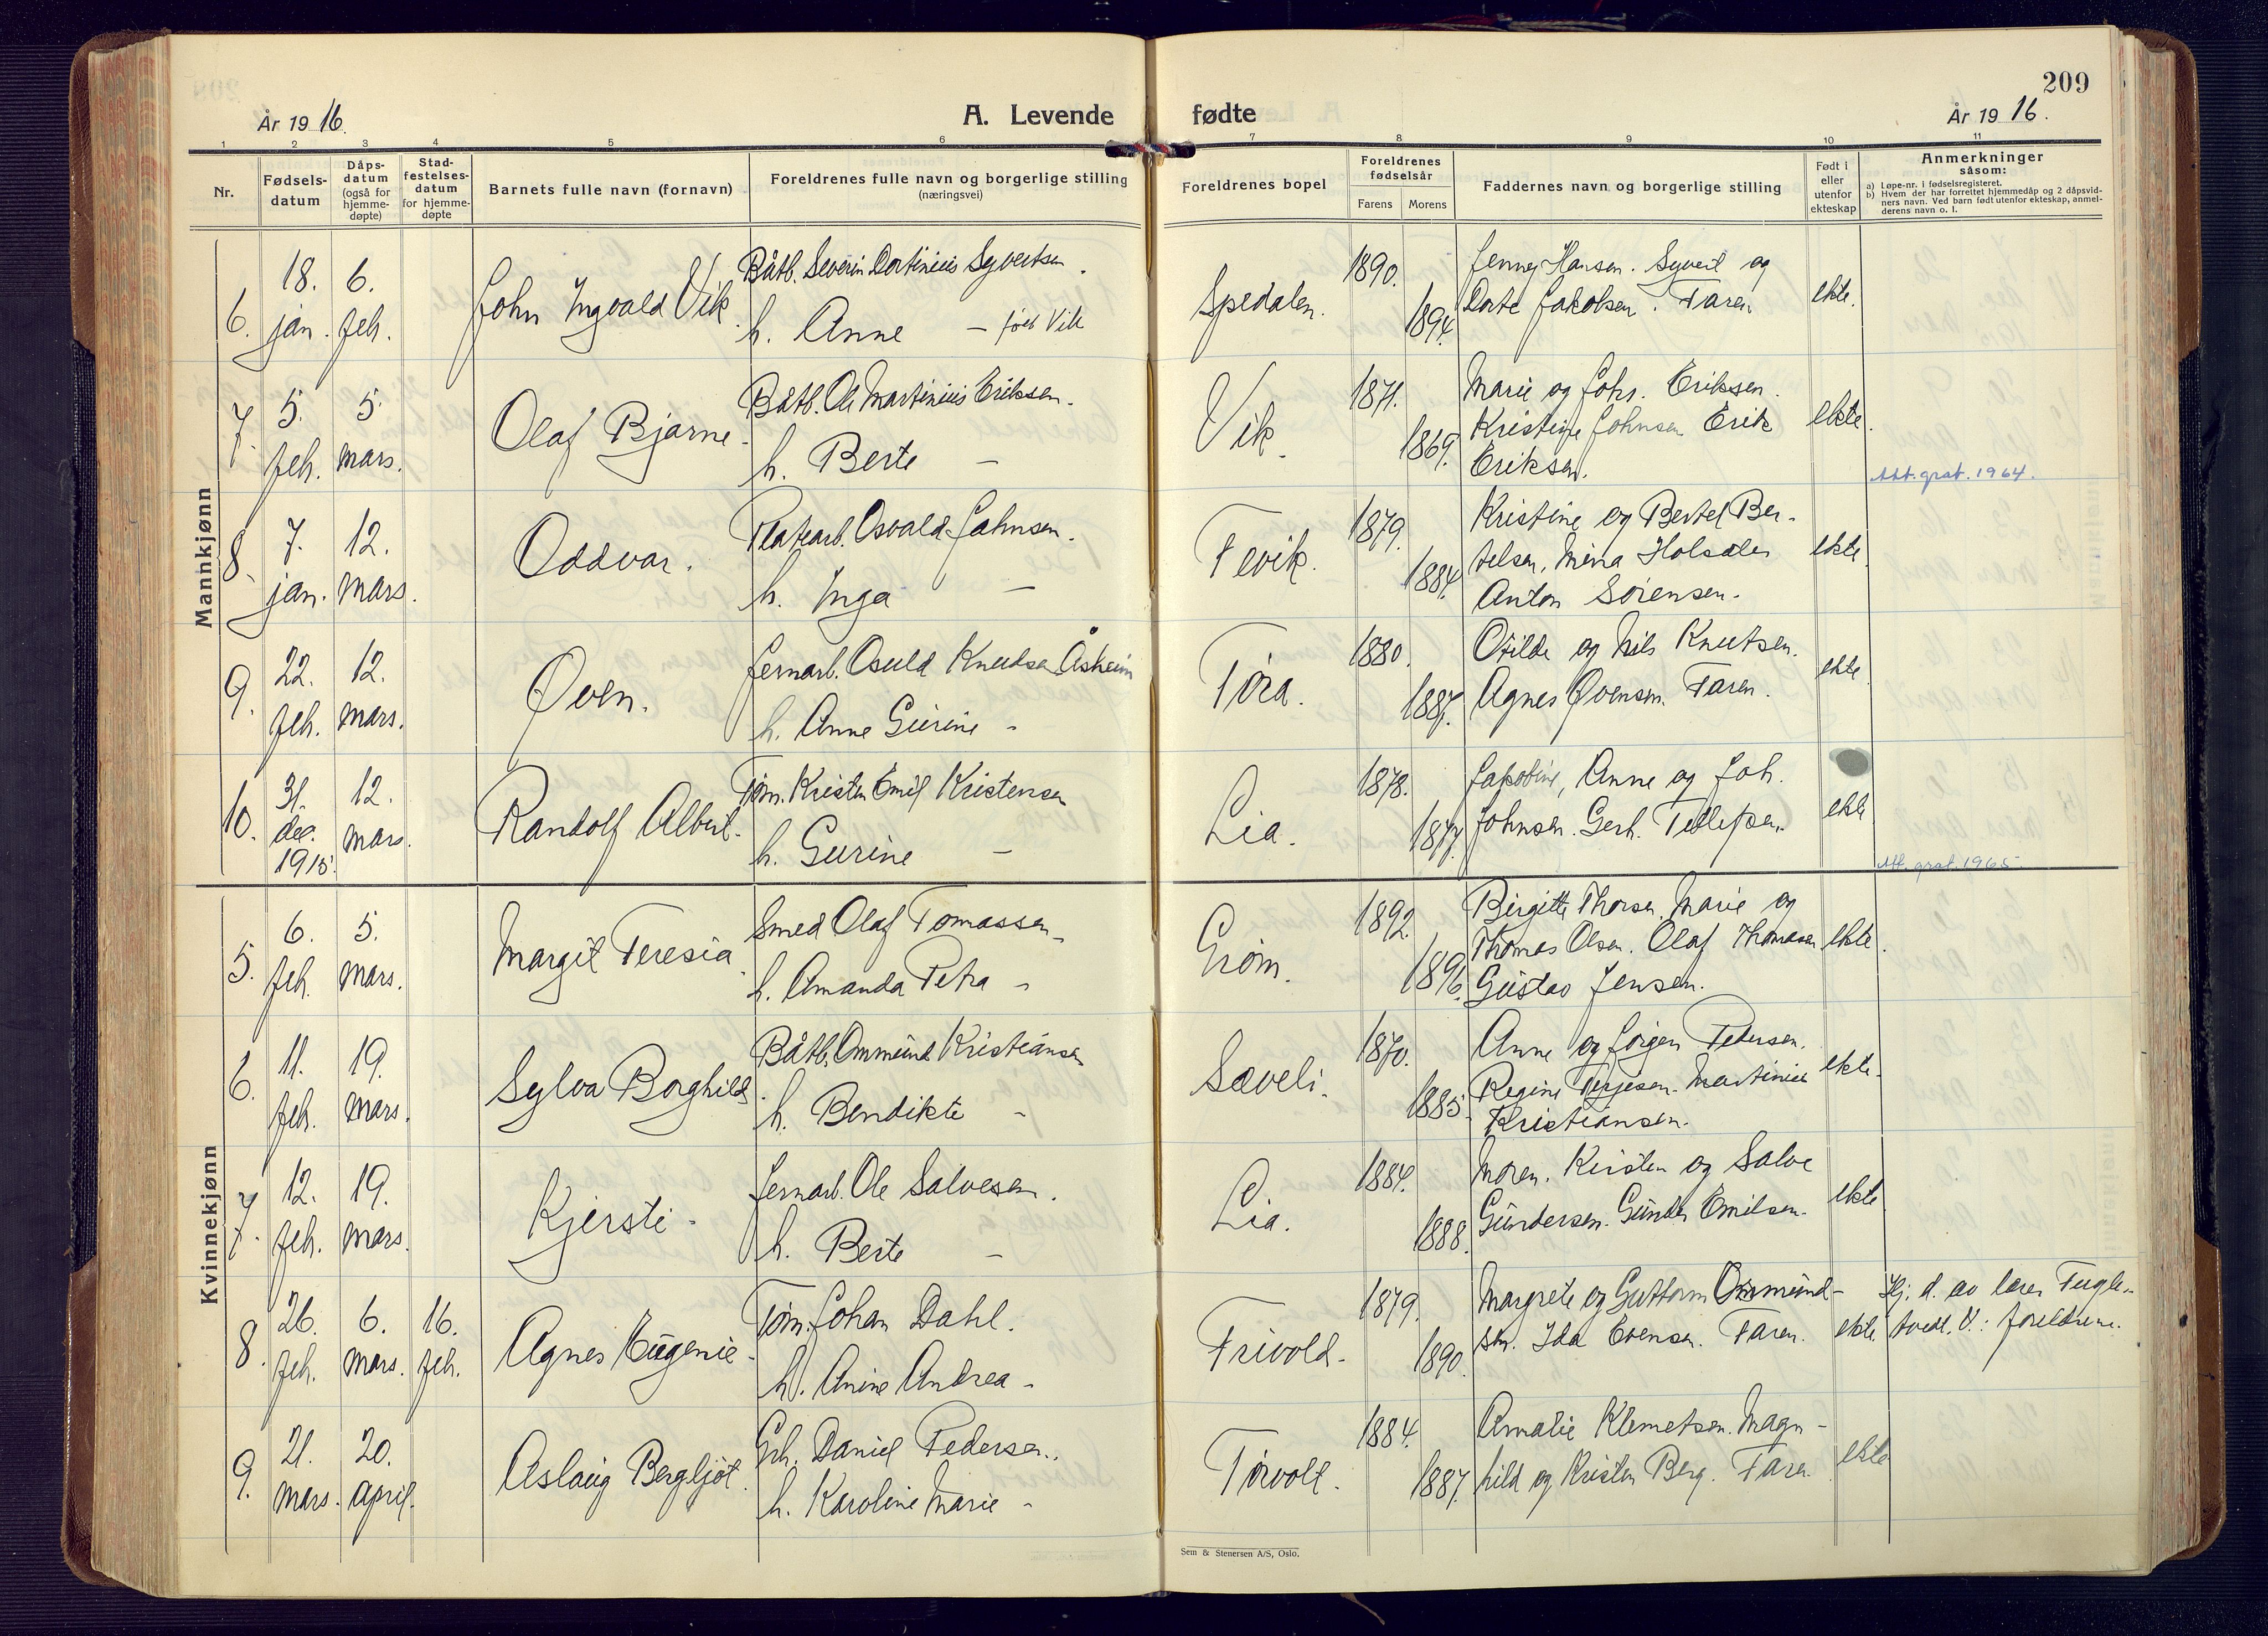 209
År 1916.
A. Levende fødte
År 1916.
1 2 3 4 5 6 7 8 9 10 11
Nr.
Fødsels-
datum
Dåps-
datum
(også for
hjemme-
døpte)
Stad-
festelses-
datum
for hjemme-
døpte
Barnets fulle navn (fornavn)
Foreldrenes fulle navn og borgerlige stilling
(næringsvei)
Foreldrenes bopel
Foreldrenes
fødselsår
Farens Morens
Faddernes navn og borgerlige stilling
Født i
eller
utenfor
ekteskap
Anmerkninger
såsom:
a) Løpe-nr. i fødselsregisteret.
b) Hvem der har forrettet hjemmedåp og 2 dåpsvid-
ners navn. Ved barn født utenfor ekteskap, anmel-
derens navn o. l.
Mannkjønn
6. 18. jan. 6. feb. John Ingvald Vik.
Båtb. Severin Dortinius Syvertsen.
h. Anne — født Vik
Spedalen. 1890. 1894.
Jenny Hansen. Syvert og
Dorte Jakobsen. Faren
ekte.
7. 5. feb. 5. mars. Olaf Bjarne.
Båtb. Ole Martinius Eriksen.
h. Berte —
Vik. 1871. 1869.
Marie og Johs. Eriksen.
Kristine Johnsen Erik
Eriksen.
ekte.
Att. grat. 1964.
8. 7. jan. 12. mars. Oddvar.
Platearb. Osvald Jahnsen.
h. Inga —
Fevik. 1879. 1884.
Kristine og Bertel Ber-
telsen, Mina Holsdal
Anton Sørensen.
ekte.
9. 22. feb. 12. mars. Øven.
Jernarb. Osuld Knudsen Åsheim
h. Anne Gurine -
Tøra. 1880. 1887.
Otilde og Nils Knutsen.
Agnes Øvensen. Faren.
ekte.
10. 31. des. 1915. 12. mars. Randolf Albert.
Tøm. Kristen Emil Kristensen
h. Gurine —
Lia. 1878. 1877.
Jakobine, Anne og Joh.
Johnsen. Gerh. Tellefsen.
ekte
Att. grat. 1965
Kvinnekjønn
5. 6. feb. 5. mars. Margit Teresia.
Smed Olaf Tomassen.
h. Amanda Petra -
Grøm. 1892. 1896.
Birgitte Thorsen, Marie og
Thomas Olsen. Olaf Thomasen
Gustav Jensen.
ekte.
6. 11. feb. 19. mars. Sylva Borghild.
Båtb. Ommund Kristiansen
h. Bendikte -
Sæveli. 1870. 1885.
Anne og Jørgen Pedersen.
Regine Terjesen. Martinius
Kristiansen.
ekte.
7. 12. feb. 19. mars. Kjersti.
Jernarb. Ole Salvesen.
h. Berte —
Lia. 1884. 1888.
Moren. Kirsten og Salve
Gundersen. Gunder Emilsen.
ekte.
8. 26. feb. 6. mars. 16. feb. Agnes Eugenie.
Tøm. Johan Dahl.
h. Anine Andrea -
Frivold. 1879. 1890.
Margrete og Guttorm Ommund-
sen. Ida Evensen. Faren.
ekte.
Hj. d. av lærer Fugle-
tvedt. V.: foreldrene.
9. 21. mars. 20. april. Aslaug Bergljot.
Grb. Daniel Pedersen.
h. Karoline Marie -
Tørvolt. 1884. 1887.
Amalie Klemetsen. Magn-
hild og Kristen Berg. Faren.
ekte
Sem & Stenersen A/S, Oslo.